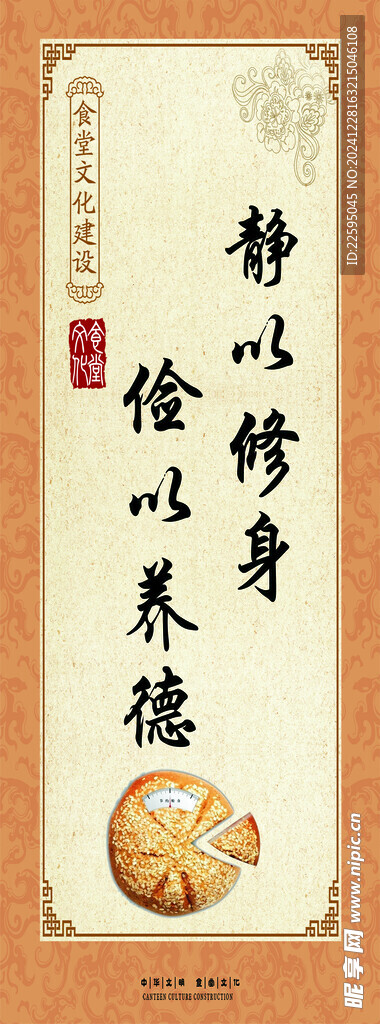 静以修身
俭以养德
食堂文化建设
食堂文化
中华文明 食堂文化
CANTEEN CULTURE CONSTRUCTION
ID:22595045 NO:20241228163215046108
昵享网 www.nipic.cn